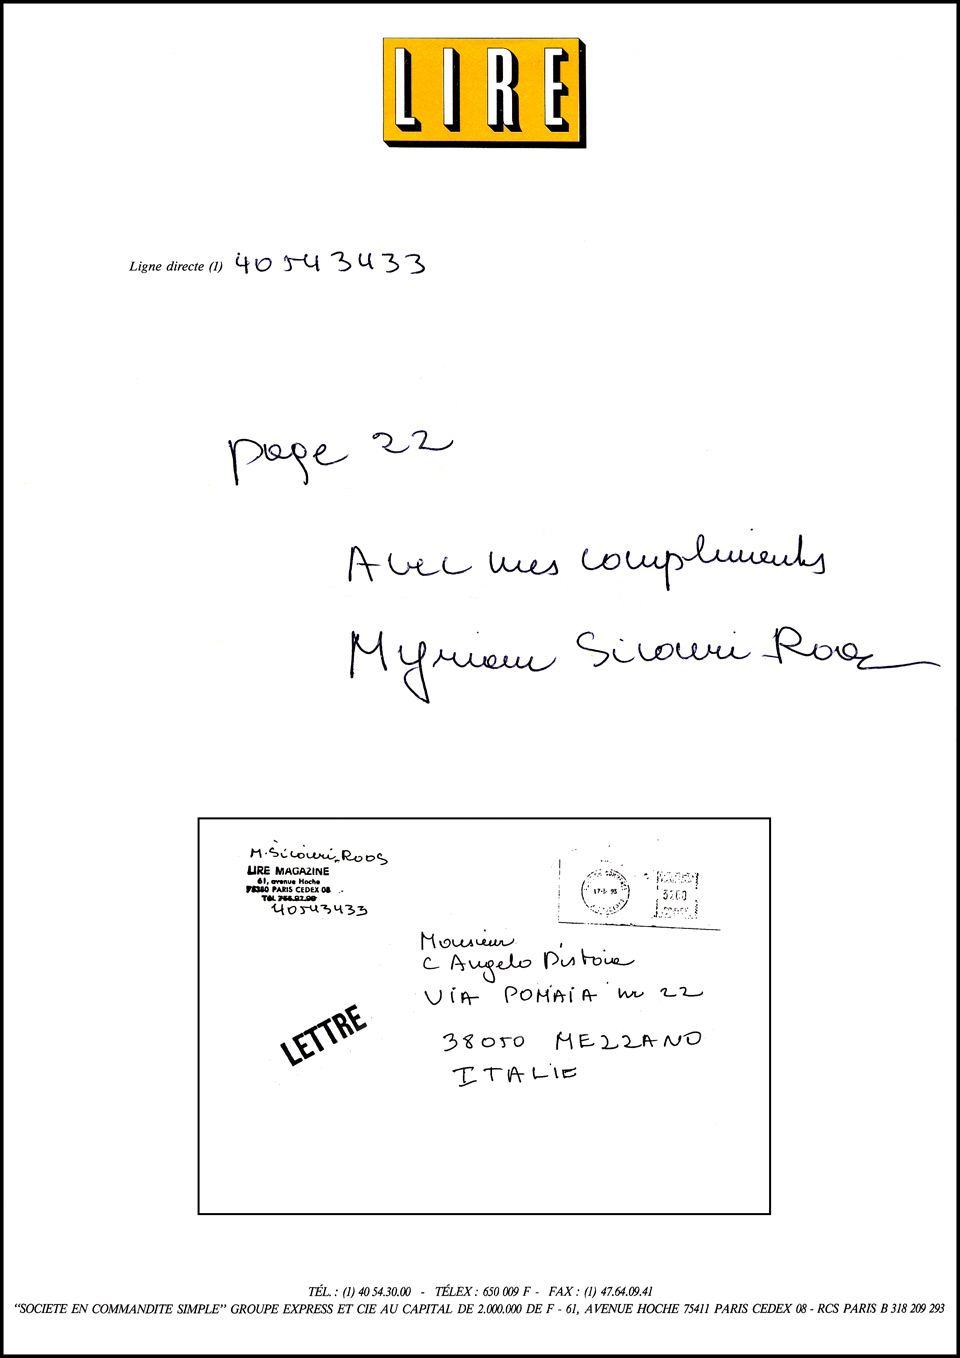 LIRE
Ligne directe (1) 40543433
page 22
Avec mes compliments
Myriam Sicouri Roos
M. Sicouri_Roos
LIRE MAGAZINE
61, avenue Hoche
75380 PARIS CEDEX 08
40543433
3260
Monsieur
C Angelo Pistoia
VIA POMAIA nr 22
LETTRE
38050 MEZZANO
ITALIE
TÉL. : (1) 40 54.30.00 - TÉLEX : 650 009 F - FAX : (1) 47.64.09.41
“SOCIETE EN COMMANDITE SIMPLE” GROUPE EXPRESS ET CIE AU CAPITAL DE 2.000.000 DE F - 61, AVENUE HOCHE 75411 PARIS CEDEX 08 - RCS PARIS B 318 209 293